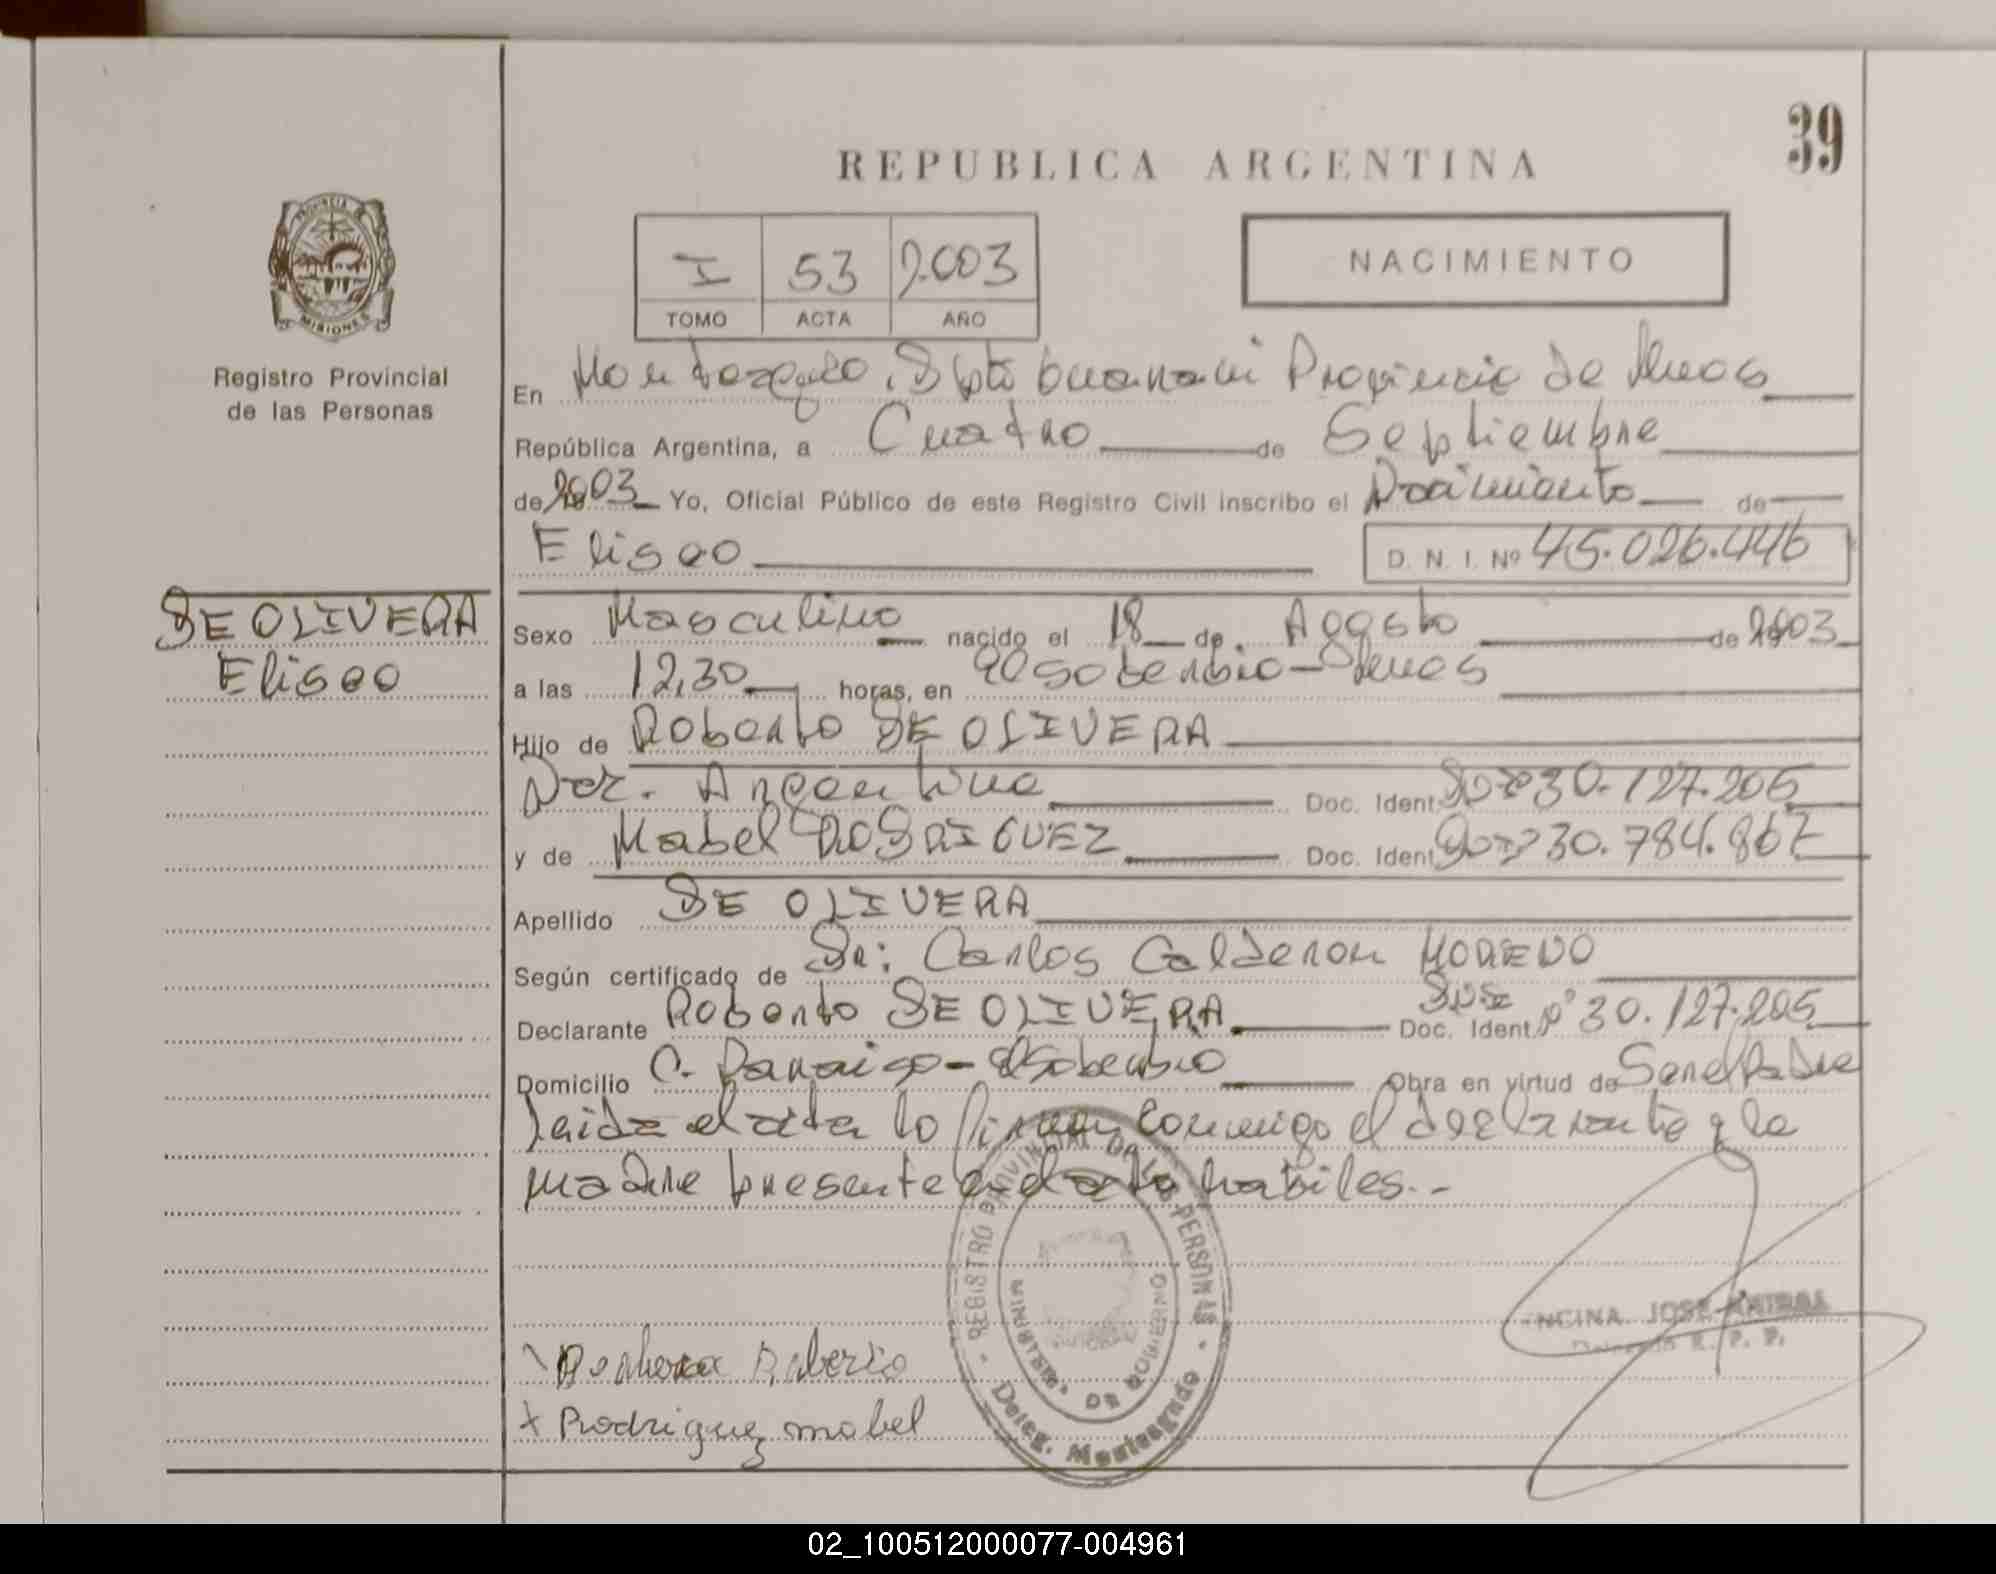 39
REPUBLICA ARGENTINA
I 53 2.003
TOMO ACTA AÑO
NACIMIENTO
PROVINCIA DE
MISIONES
Registro Provincial
de las Personas
En Monteagudo, Dpto Guarani Provincia de Mnes
República Argentina, a Cuatro de Septiembre
de 2003 Yo, Oficial Público de este Registro Civil inscribo el Nacimiento de
Eliseo D. N. I. Nº 45.026.446
DE OLIVERA
Eliseo
Sexo Masculino nacido el 18 de Agosto de 2003
a las 12,30 horas, en El Soberbio - Mnes
Hijo de Roberto DE OLIVERA
Nac. Argentina Doc. Ident. 30.127.205
y de Mabel RODRIGUEZ Doc. Ident. 30.784.867
Apellido DE OLIVERA
Según certificado de Dr: Carlos Calderon MORENO
Declarante Roberto DE OLIVERA Doc. Ident. Nº 30.127.205
Domicilio C. Paraiso - El Soberbio Obra en virtud de Ser el Padre
Leida el acta lo firman conmigo el declarante y la
madre presente en el acto habiles.-
REGISTRO PROVINCIAL DE LAS PERSONAS
MINISTERIO DE GOBIERNO
Deleg. Monteagudo
NCINA JOSE
Delegado R. P. P.
Roberto
x Rodriguez mabel
02_100512000077-004961